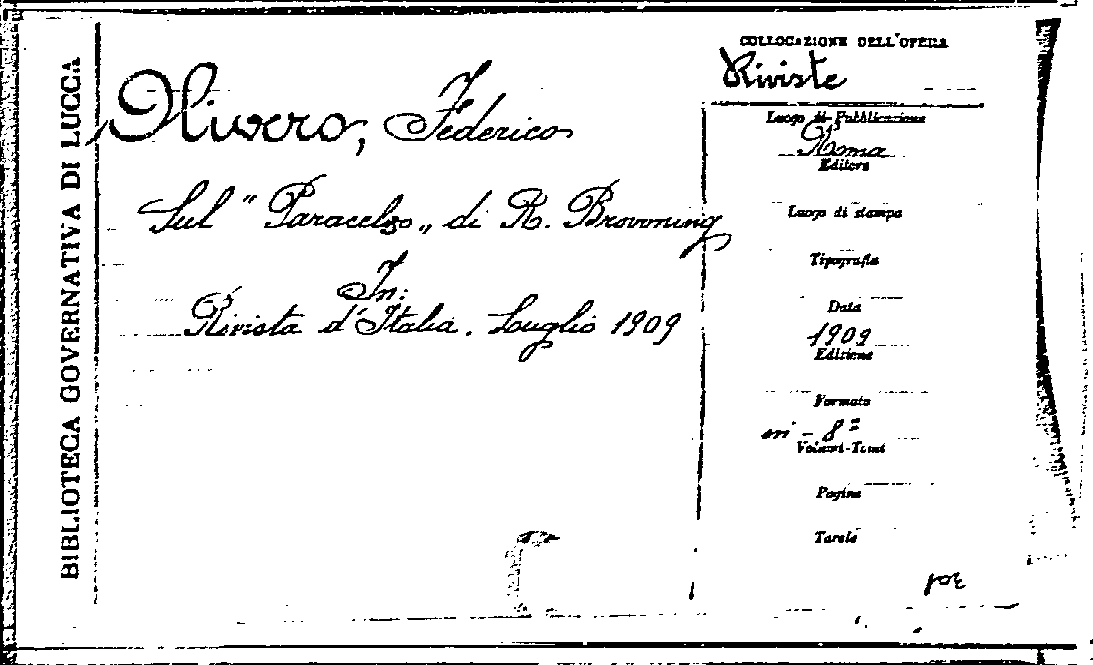 BIBLIOTECA GOVERNATIVA DI LUCCA
Olivero, Federico
Sul "Paracelso" di R. Browning
In:
Rivista d'Italia. Luglio 1909
COLLOCAZIONE DELL'OPERA
Riviste
Luogo di Pubblicazione
Roma
Editore
Luogo di stampa
Tipografia
Data
1909
Edizione
Formato
in-8º
Volumi-Tomi
Pagine
Tavole